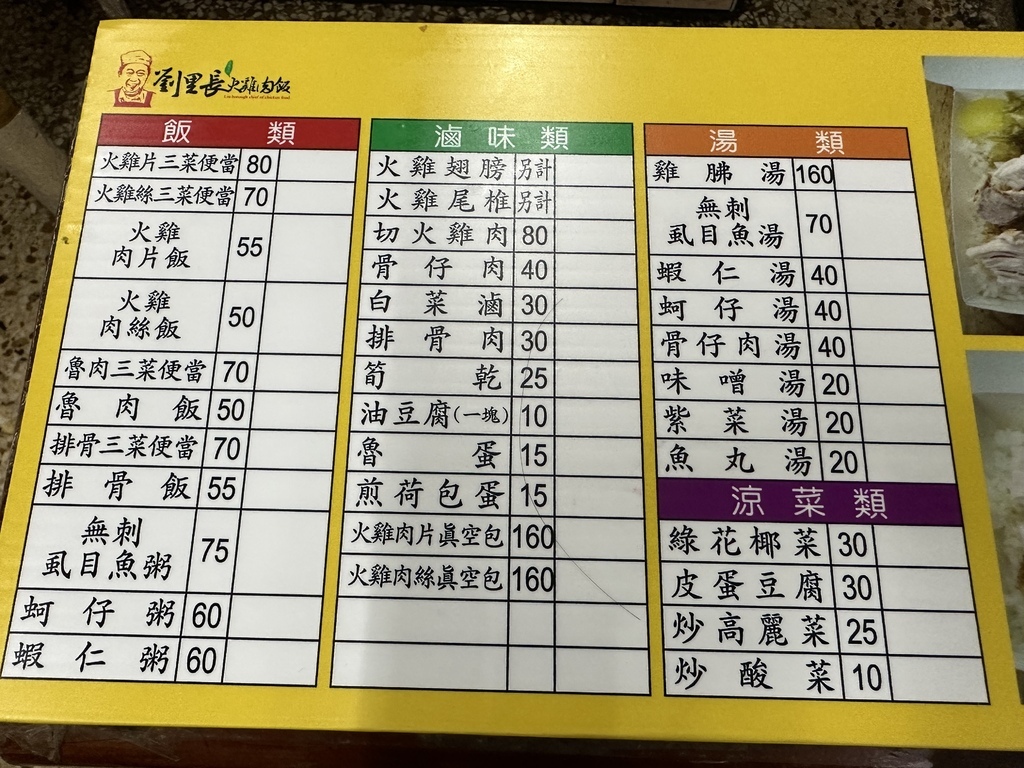 劉里長火雞肉飯
飯類
火雞片三菜便當 80
火雞絲三菜便當 70
火雞
肉片飯 55
火雞
肉絲飯 50
魯肉三菜便當 70
魯肉飯 50
排骨三菜便當 70
排骨飯 55
無刺
虱目魚粥 75
蚵仔粥 60
蝦仁粥 60
滷味類
火雞翅膀 另計
火雞尾椎 另計
切火雞肉 80
骨仔肉 40
白菜滷 30
排骨肉 30
筍乾 25
油豆腐(一塊) 10
魯蛋 15
煎荷包蛋 15
火雞肉片真空包 160
火雞肉絲真空包 160
湯類
雞胇湯 160
無刺
虱目魚湯 70
蝦仁湯 40
蚵仔湯 40
骨仔肉湯 40
味噌湯 20
紫菜湯 20
魚丸湯 20
涼菜類
綠花椰菜 30
皮蛋豆腐 30
炒高麗菜 25
炒酸菜 10